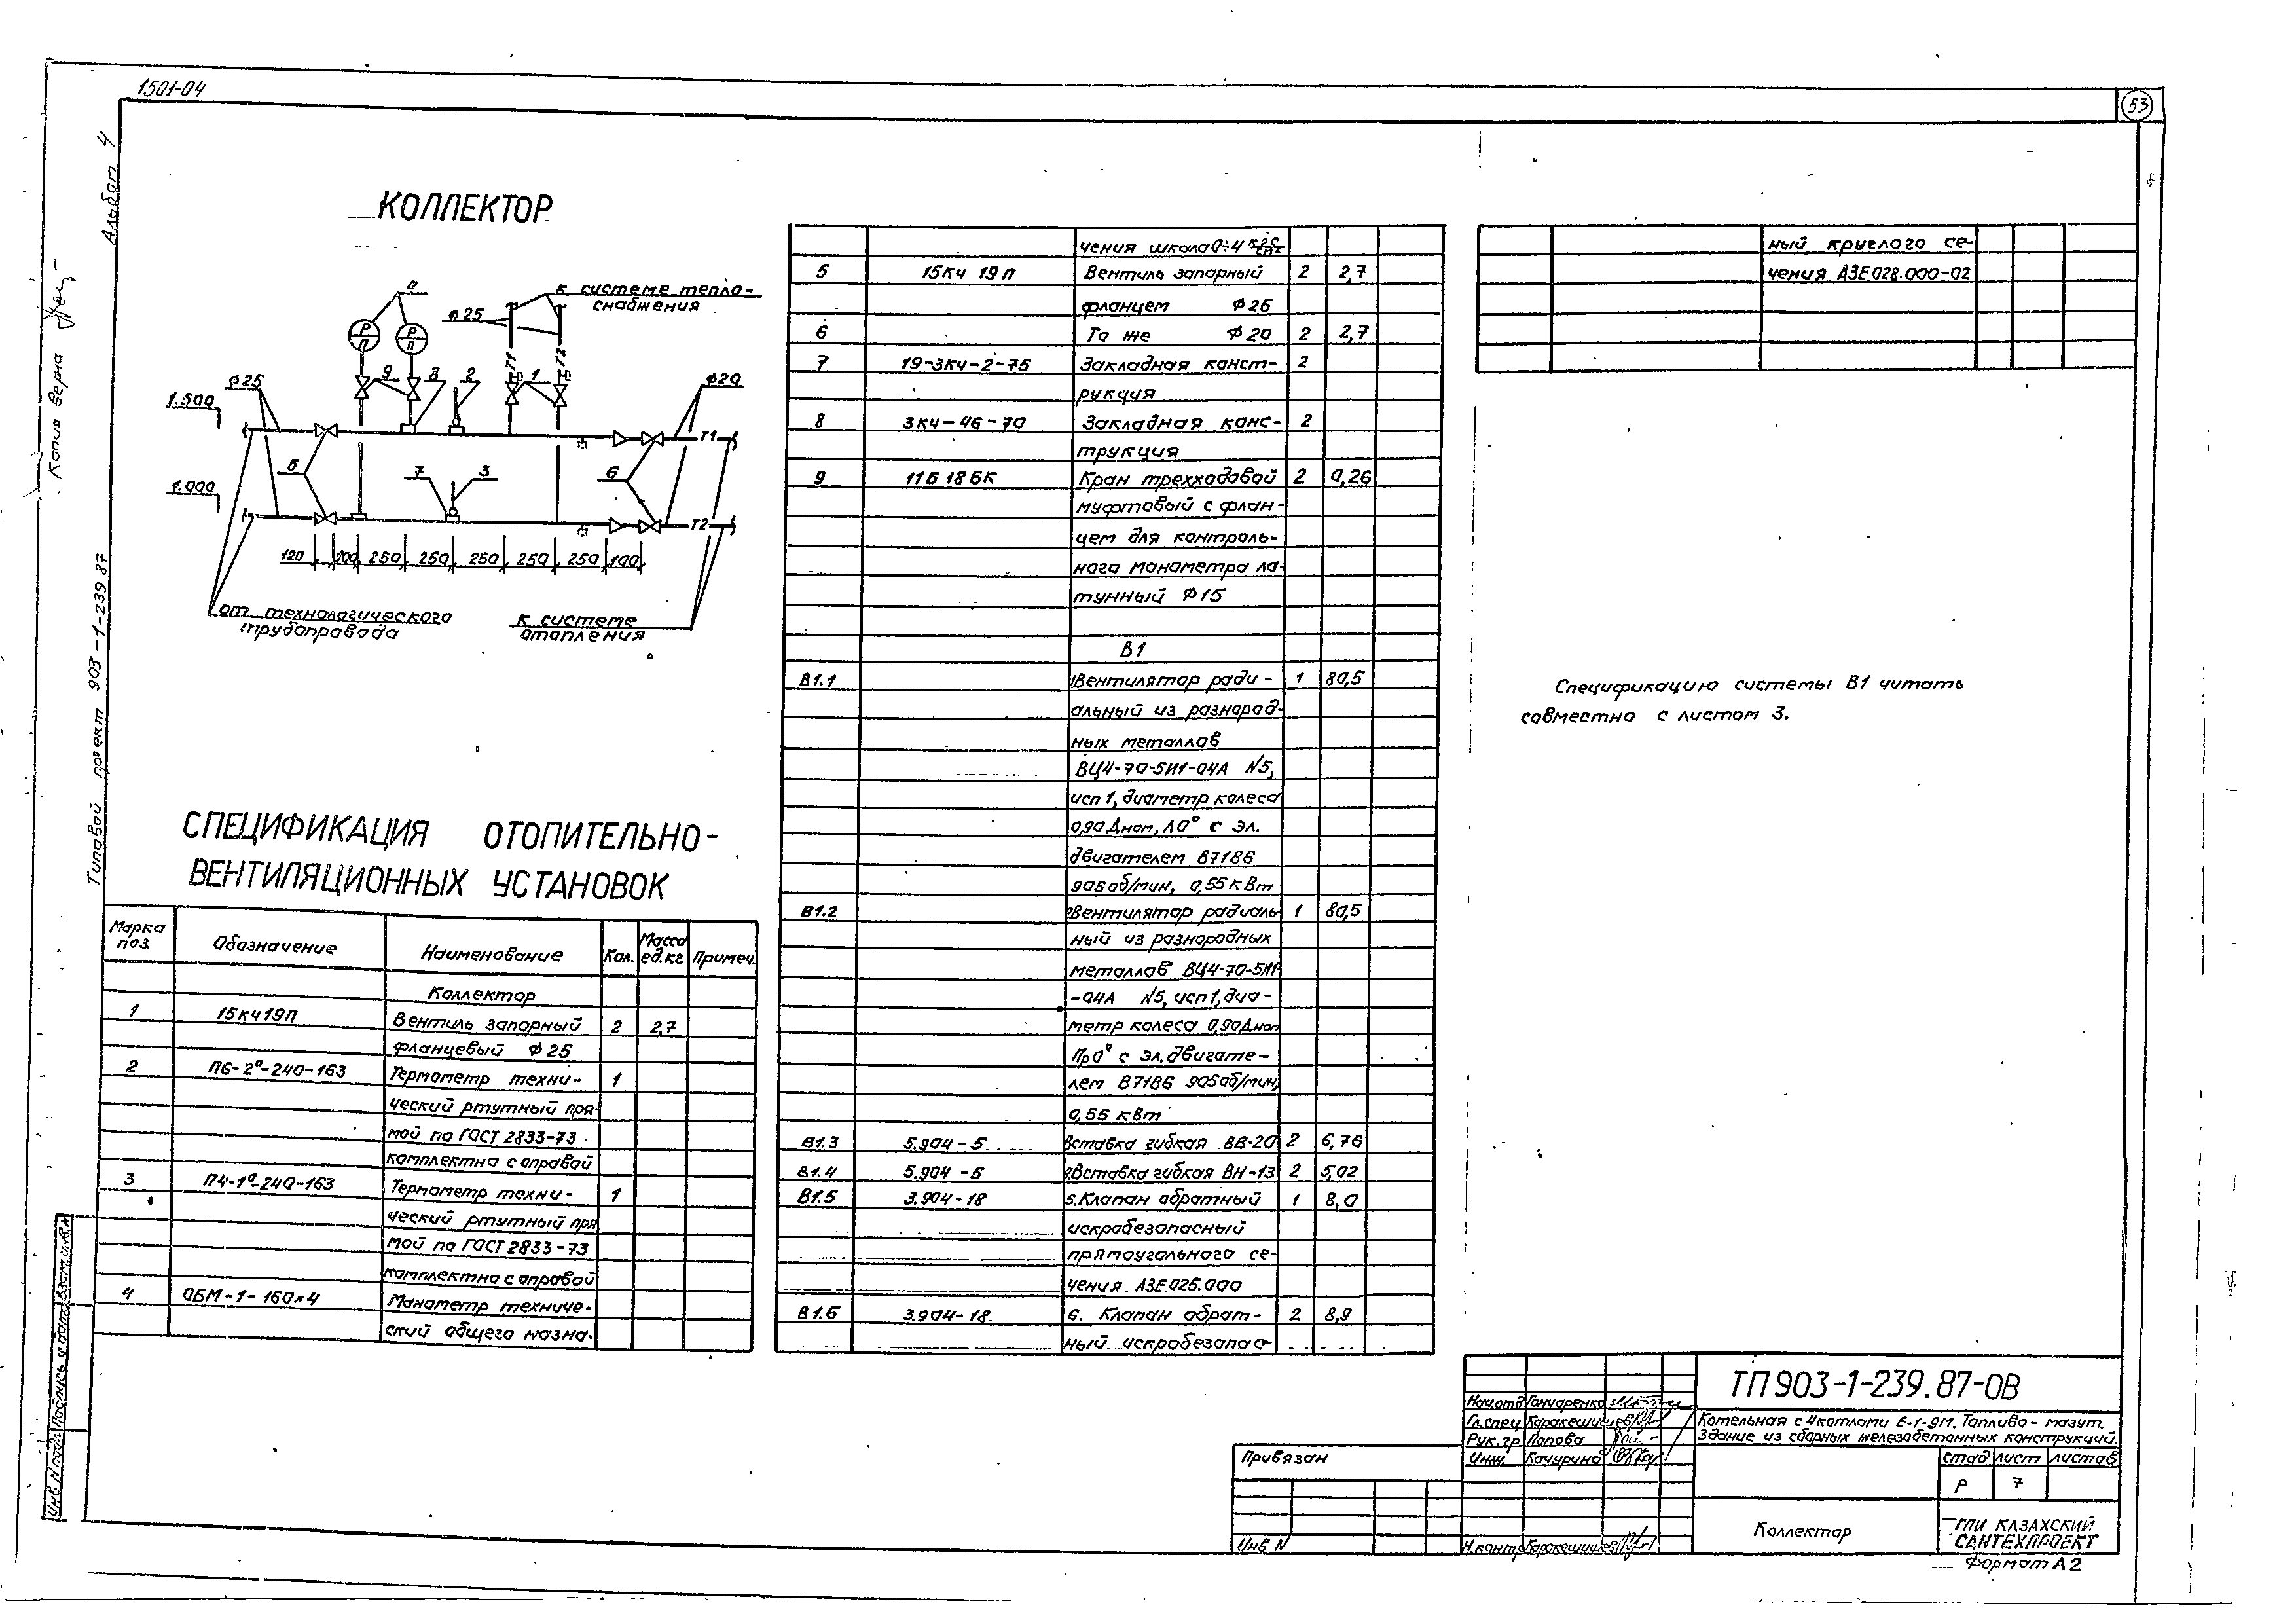 1501-04
53
Альбом 4
Копия верна
Типовой проект 903-1-239 87
КОЛЛЕКТОР
4
к системе тепло-
снабжения
ф25
P
П
P
П
T1
T2
9 8 2 1
ф25
ф20
1.500
T1
5
7
3
6
1.000
T2
120 100 250 250 250 250 250 100
от технологического
трубопровода
к системе
отопления
СПЕЦИФИКАЦИЯ ОТОПИТЕЛЬНО-
ВЕНТИЛЯЦИОННЫХ УСТАНОВОК
Марка поз. Обозначение Наименование Кол. Масса ед.кг Примеч.
Коллектор
1 15кч19п Вентиль запорный 2 2,7
фланцевый ф25
2 П6-2°-240-163 Термометр техни- 1
ческий ртутный пря-
мой по ГОСТ 2833-73
комплектно с оправой
3 П4-1°-240-163 Термометр техни- 1
ческий ртутный пря
мой по ГОСТ 2833-73
комплектно с оправой
4 ОБМ-1-160х4 Манометр техниче-
ский общего назна-
чения шкала 0÷4 кгс/см²
5 15кч 19п Вентиль запорный 2 2,7
фланцем ф25
6 То же ф20 2 2,7
7 19-3кч-2-75 Закладная конст- 2
рукция
8 3кч-46-70 Закладная конс- 2
трукция
9 11Б 18БК Кран трехходовой 2 0,26
муфтовый с флан-
цем для контроль-
ного манометра ла-
тунный ф15
В1
В1.1 Вентилятор ради- 1 80,5
альный из разнород-
ных металлов
ВЦ4-70-5И1-04А N5,
исп 1, диаметр колеса
0,90Дном, Л0° с эл.
двигателем В71В6
905об/мин, 0,55кВт
В1.2 Вентилятор радиаль 1 80,5
ный из разнородных
металлов ВЦ4-70-5И1
-04А N5, исп 1, диа-
метр колеса 0,90Дном
Пр0° с эл. двигате-
лем В71В6 905об/мин,
0,55 кВт
В1.3 5.904-5 Вставка гибкая ВВ-20 2 6,76
В1.4 5.904-5 Вставка гибкая ВН-13 2 5,02
В1.5 3.904-18 5.Клапан обратный 1 8,0
искробезопасный
прямоугольного се-
чения. АЗЕ.025.000
В1.6 3.904-18 6. Клапан обрат- 2 8,9
ный искробезопас-
ный круглого се-
чения АЗЕ028.000-02
Спецификацию системы В1 читать
совместно с листом 3.
Инв N подл Подпись и дата Взам.инв.N
ТП903-1-239.87-ОВ
Нач.отд Гончаренко
Гл.спец Каракешишев
Рук.гр Попова
Инж. Качурина
Н.контр Каракешишев
Котельная с 4 котлами Е-1-9М. Топливо - мазут.
Здание из сборных железобетонных конструкций.
Привязан
Инв N
Стад Лист Листов
Р 7
Коллектор
ГПИ КАЗАХСКИЙ
САНТЕХПРОЕКТ
Формат А2